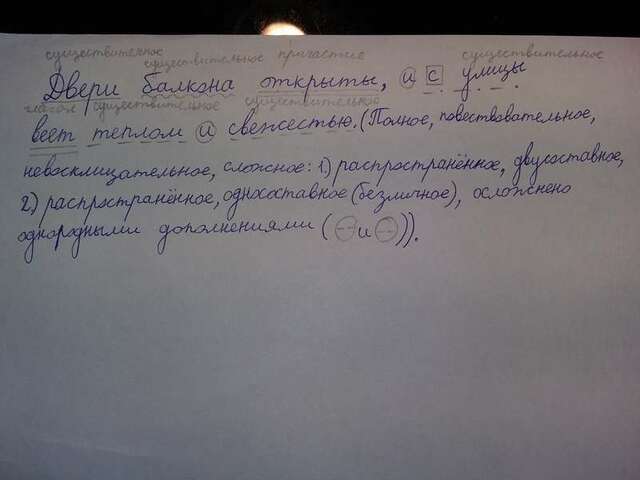 существительное существительное причастие существительное
Двери балкона открыты, и с улицы
глагол существительное существительное
веет теплом и свежестью. (Полное, повествовательное,
невосклицательное, сложное: 1) распространённое, двусоставное,
2) распространённое, односоставное (безличное), осложнено
однородными дополнениями ( и )).